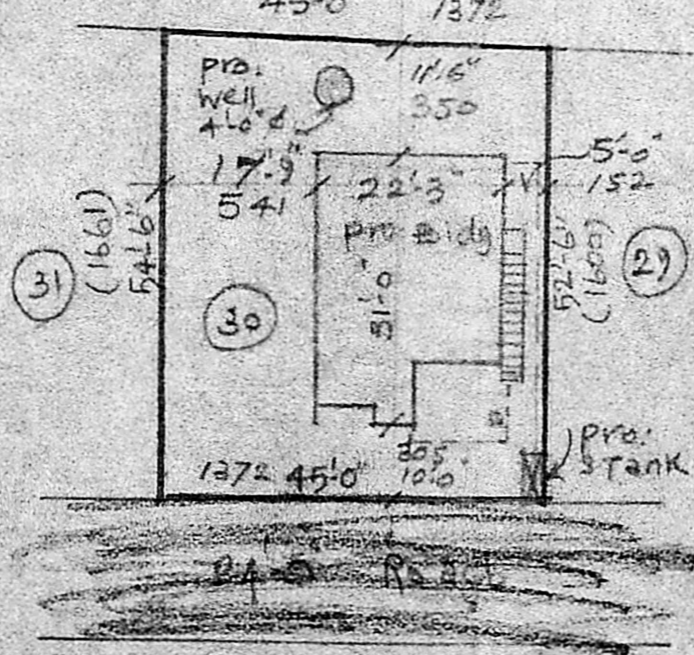 45'-0" 1372
pro.
well
4'-0" d
11'-6"
350
17'-9"
541
22'-3"
5'-0"
152
pro Bldg
31'-0"
54'-6"
(1661)
52'-6"
(1600)
31
30
29
305
10'-0"
1372 45'-0"
pro.
s Tank
Road